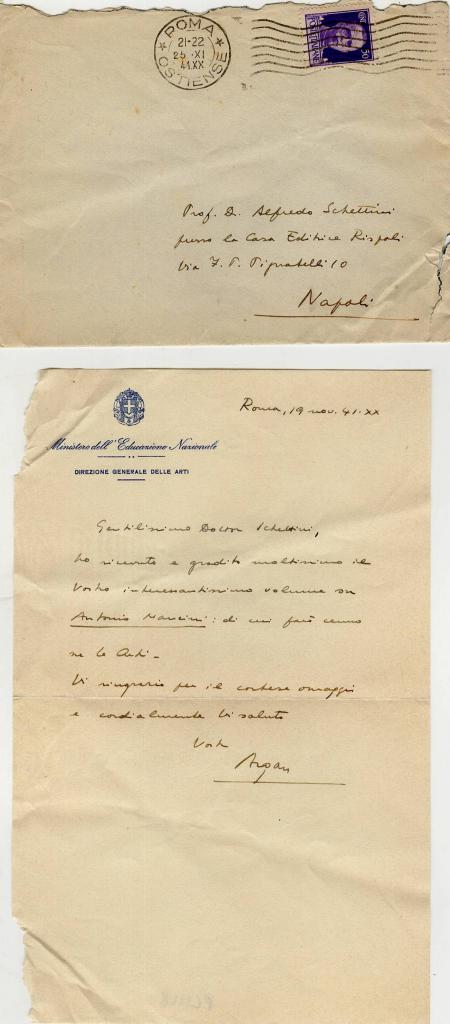 ROMA
OSTIENSE
21-22
25 · XI
41.XX
50
Prof. Dr. Alfredo Schettini
presso la Casa Editrice Rispoli
Via F. P. Pignatelli 10
Napoli
Roma, 19 nov. 41-XX
Ministero dell'Educazione Nazionale
DIREZIONE GENERALE DELLE ARTI
Gentilissimo Dottor Schettini,
ho ricevuto e gradito moltissimo il
Vostro interessantissimo volume su
Antonio Mancini: di cui farò cenno
ne le Arti-
Vi ringrazio per il cortese omaggio
e cordialmente Vi saluto
Vostro
Argan